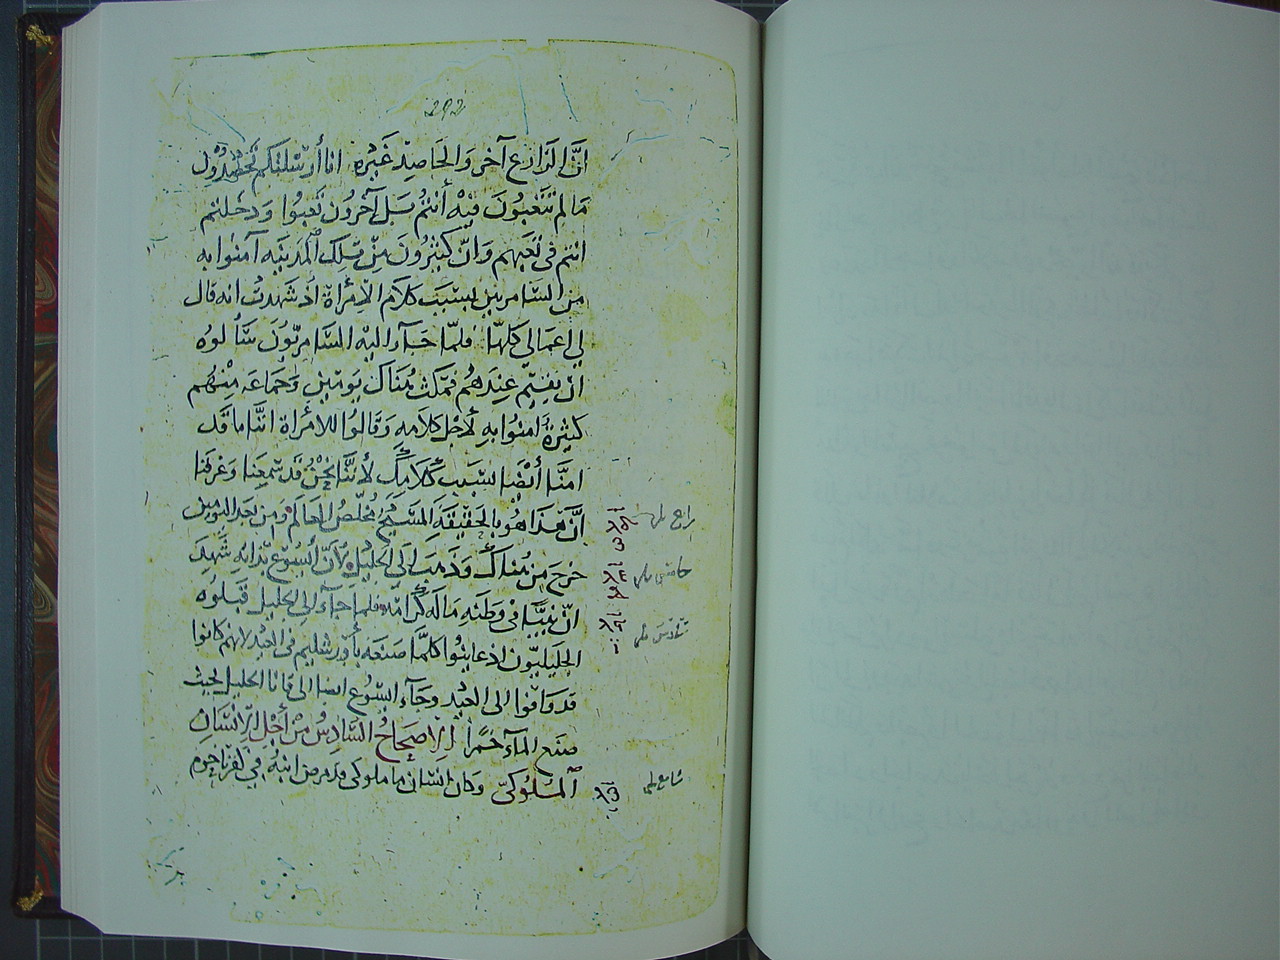 292
انَّ الزارع آخر وَالحَاصِد غَيْرُه انا أرْسَلتكم تحصُدُون
مَا لم تتعَبُونَ فيْه أنتمُ بَل آخرُون تَعبوُا وَدخلتم
انتم في تعَبهم وَانّ كثيرُونَ مِن تلِك المدينَه آمنوا به
من السَّامريين بسَبَب كلاَم الاِمرأة اذ شهَدتْ انه قال
لي اعمَالي كلهَا فلمّا جَآء اليْه السَّامريّونَ سَألوُه
ان يقيم عِندَهُم فمكث هُنَاك يَومَين وَجماعَه مِنْهُم
كثيرَة امنوُا بهِ لأجْل كلاَمِهِ وَقالوُا للامرأة انَّنا ما قد
امنَّا أيْضَا بسَبَب كلاَمِكِ لأنَّنَا نحْنُ قد سَمِعنا وَعَرفنا
أنَّ هَذا هُو بالحَقيقَةِ المَسيْحُ مُخَلّصُ العَالَم وَمن بَعد اليَومَين
خرجَ من هُناكَ وَذَهَبَ إلى الجليْل لأنّ اليسُوع بذاتِه شَهدَ
انّ نبيَّا في وَطنهِ مَا لَه كرَامَة فلما جَآء إلى الجليل قَبلوُه
الجَليليّون اذ عاينوُا كلمَّا صنَعَه بأورشليم في العيْد لانهم كانوا
قد وَافوا الى العيْد وجَآء ايسُوع ايضا الى قانا الجليل حيث
صنَع المآء خمرًا الإصحَاحُ السَّادِسُ مِنْ أجْلِ الإنسَان
المُلوُكيّ وَكان انسَان ما ملوكي قد مرض ابنهُ في كفرناحوم
رابع
خامس
سادس
سابع